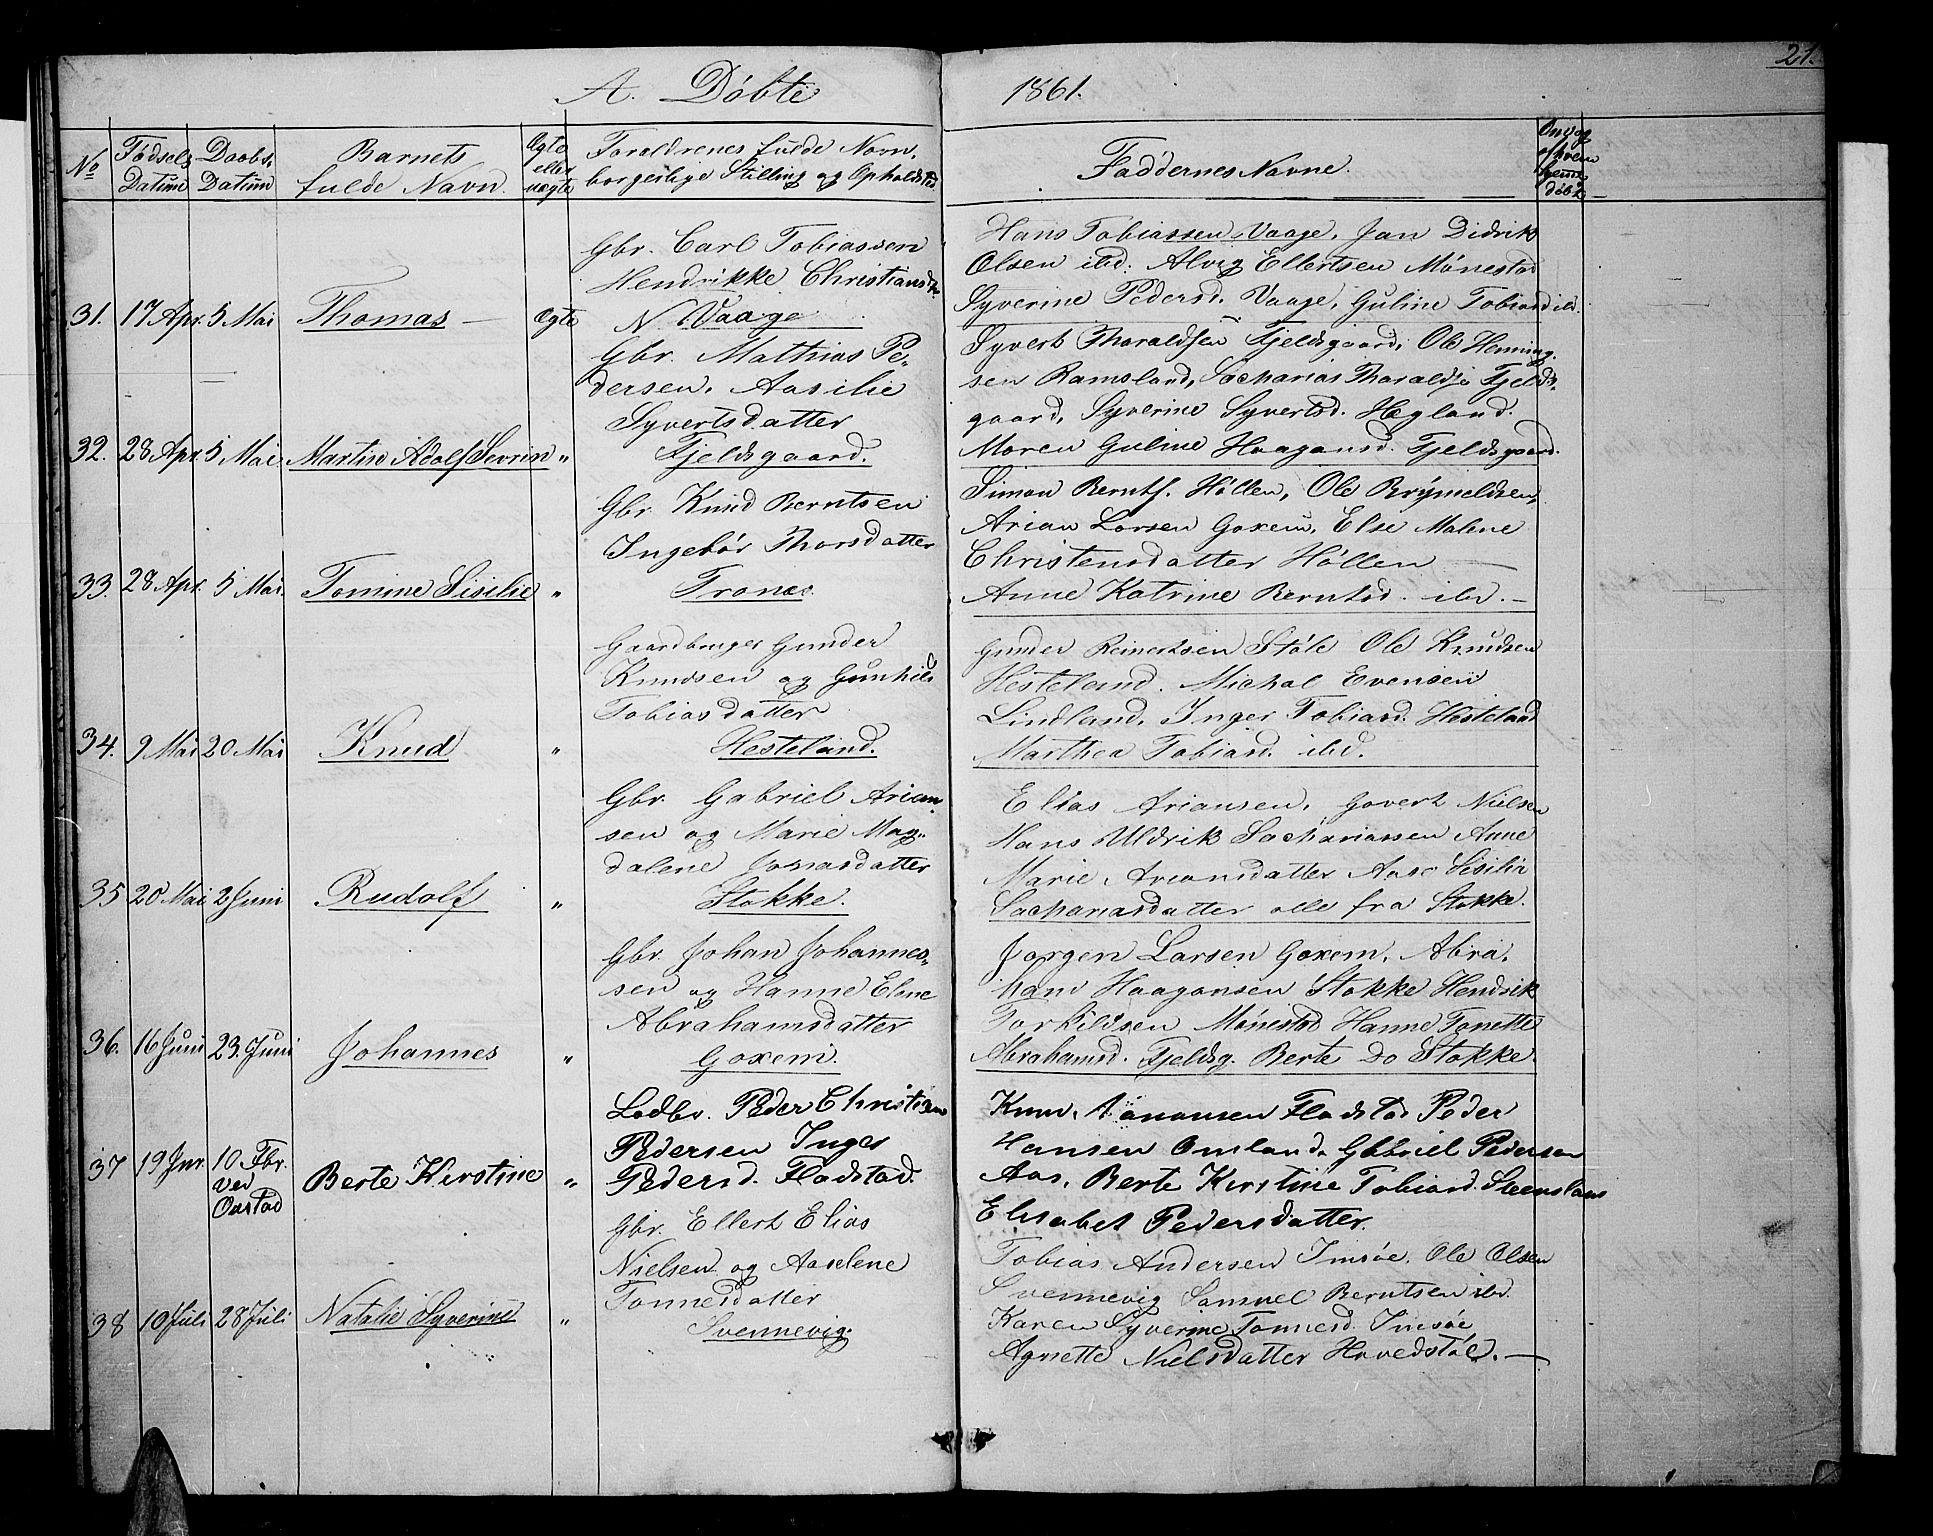 21.
A. Döbte 1861.
No
Födsels Datum
Daabs Datum
Barnets fulde Navn.
Ægte eller uægte
Foraldrenes fulde Navn, borgerlige Stilling og Opholdsted
Faddernes Navne.
Om og af hvem hjemedöbt
31. 17 Apr. 5 Mai Thomas Ægte
Gbr. Carl Tobiassen
Hendrikke Christiansdtr
N. Vaage
Hans Tobiassen Vaage, Jan Didrik
Olsen ibd. Alvig Ellertsen Mönestad
Syverine Pedersd. Vaage, Guline Tobiasd ibd.
32. 28 Apr. 5 Mai. Martin Adolf Sevrin "
Gbr. Mathias Pe-
dersen, Aasilie
Syvertsdatter
Fjeldsgaard.
Syvert Tharaldsen Fjeldsgaard, Ole Henning-
sen Ramsland, Sacharias Tharalds. Fjelds-
gaard, Syverine Syvertsd. Hægland.
Maren Guline Haagansd. Fjeldsgaard.
33. 28 Apr. 5 Mai. Tomine Sisilie "
Gbr. Knud Berntsen
Ingebör Thorsdatter
Tronæs.
Simon Bernts. Höllen, Ole Brÿnieldsen,
Arian Larsen Goxem, Else Malene
Christensdatter Höllen
Anne Katrine Berntsd. ibd.
34. 9 Mai 20 Mai Knud "
Gaardbruger Gunder
Knudsen og Gunhild
Tobiasdatter
Hesteland.
Gunder Reinertsen Støle Ole Knudsen
Hesteland. Michal Evensen
Lindland, Inger Tobiasd. Hesteland
Marthea Tobiasd. ibd.
35 20 Mai 2 Juni Rudolf "
Gbr. Gabriel Arian-
sen og Marie Mag-
dalene Jonasdatter
Stokke.
Elias Ariansen, Govert Nielsen
Hans Uldrik Sachariassen Anne
Marie Ariansdatter Aase Sisilia
Sachariasdatter alle fra Stokke.
36. 16 Juni 23. Juni Johannes "
Gbr. Johan Johannes-
sen og Hanne Elene
Abrahamsdatter
Goxem.
Jorgen Larsen Goxem, Abra-
ham Haagansen Stokke Hendrik
Torkildsen Mönestad Hanne Tonette
Abrahamsd. Fjeldsg. Berte Do Stokke
37 19 Jnr. 10 Fbr. ved Oastad Berte Kirstine "
Ladbr. Peder Christian
Pedersen Inger
Pedersd. Fladstad.
Fladstad Peder
Hansen Omland, Gabriel Pedersen
Aas, Berte Kirstine Tobiasd. Steensland
Elisabet Pedersdatter.
38 10 Juli 28 Juli Natalie Syverine "
Gbr. Ellert Elias
Nielsen og Aaselene
Tonnesdatter
Svennevig.
Tobias Andersen Imsöe, Ole Olsen
Svennevig Samuel Berntsen ibd.
Karen Syverine Tonnesd. Imsöe
Agnette Nielsdatter Hovedstöl.